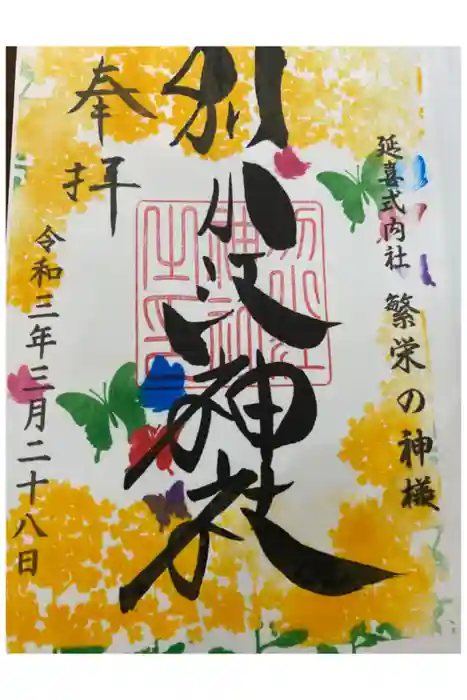 延喜式内社 繁栄の神様
別小江神社
別小江神社之印
奉拝
令和三年三月二十八日